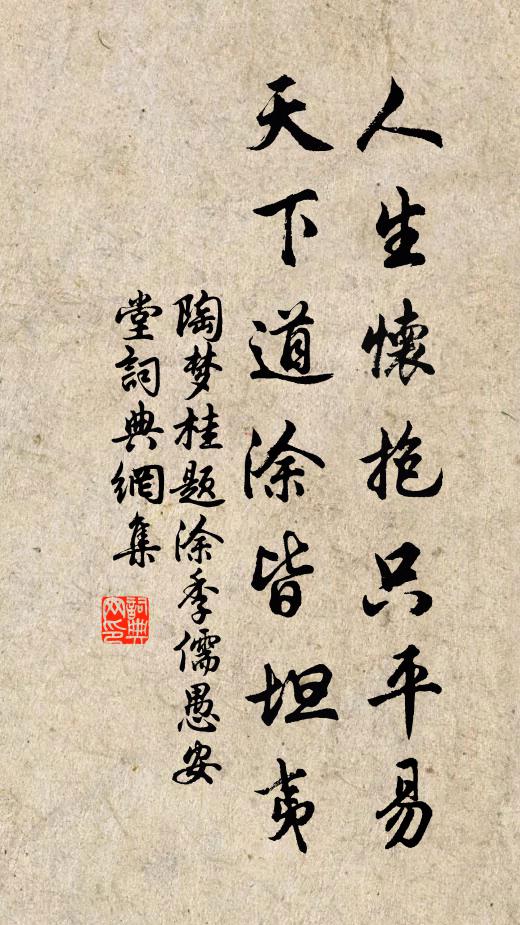 人生懷抱只平易
天下道涂皆坦夷
陶梦桂题涂季儒愚安
堂詞典網集
詞典网印